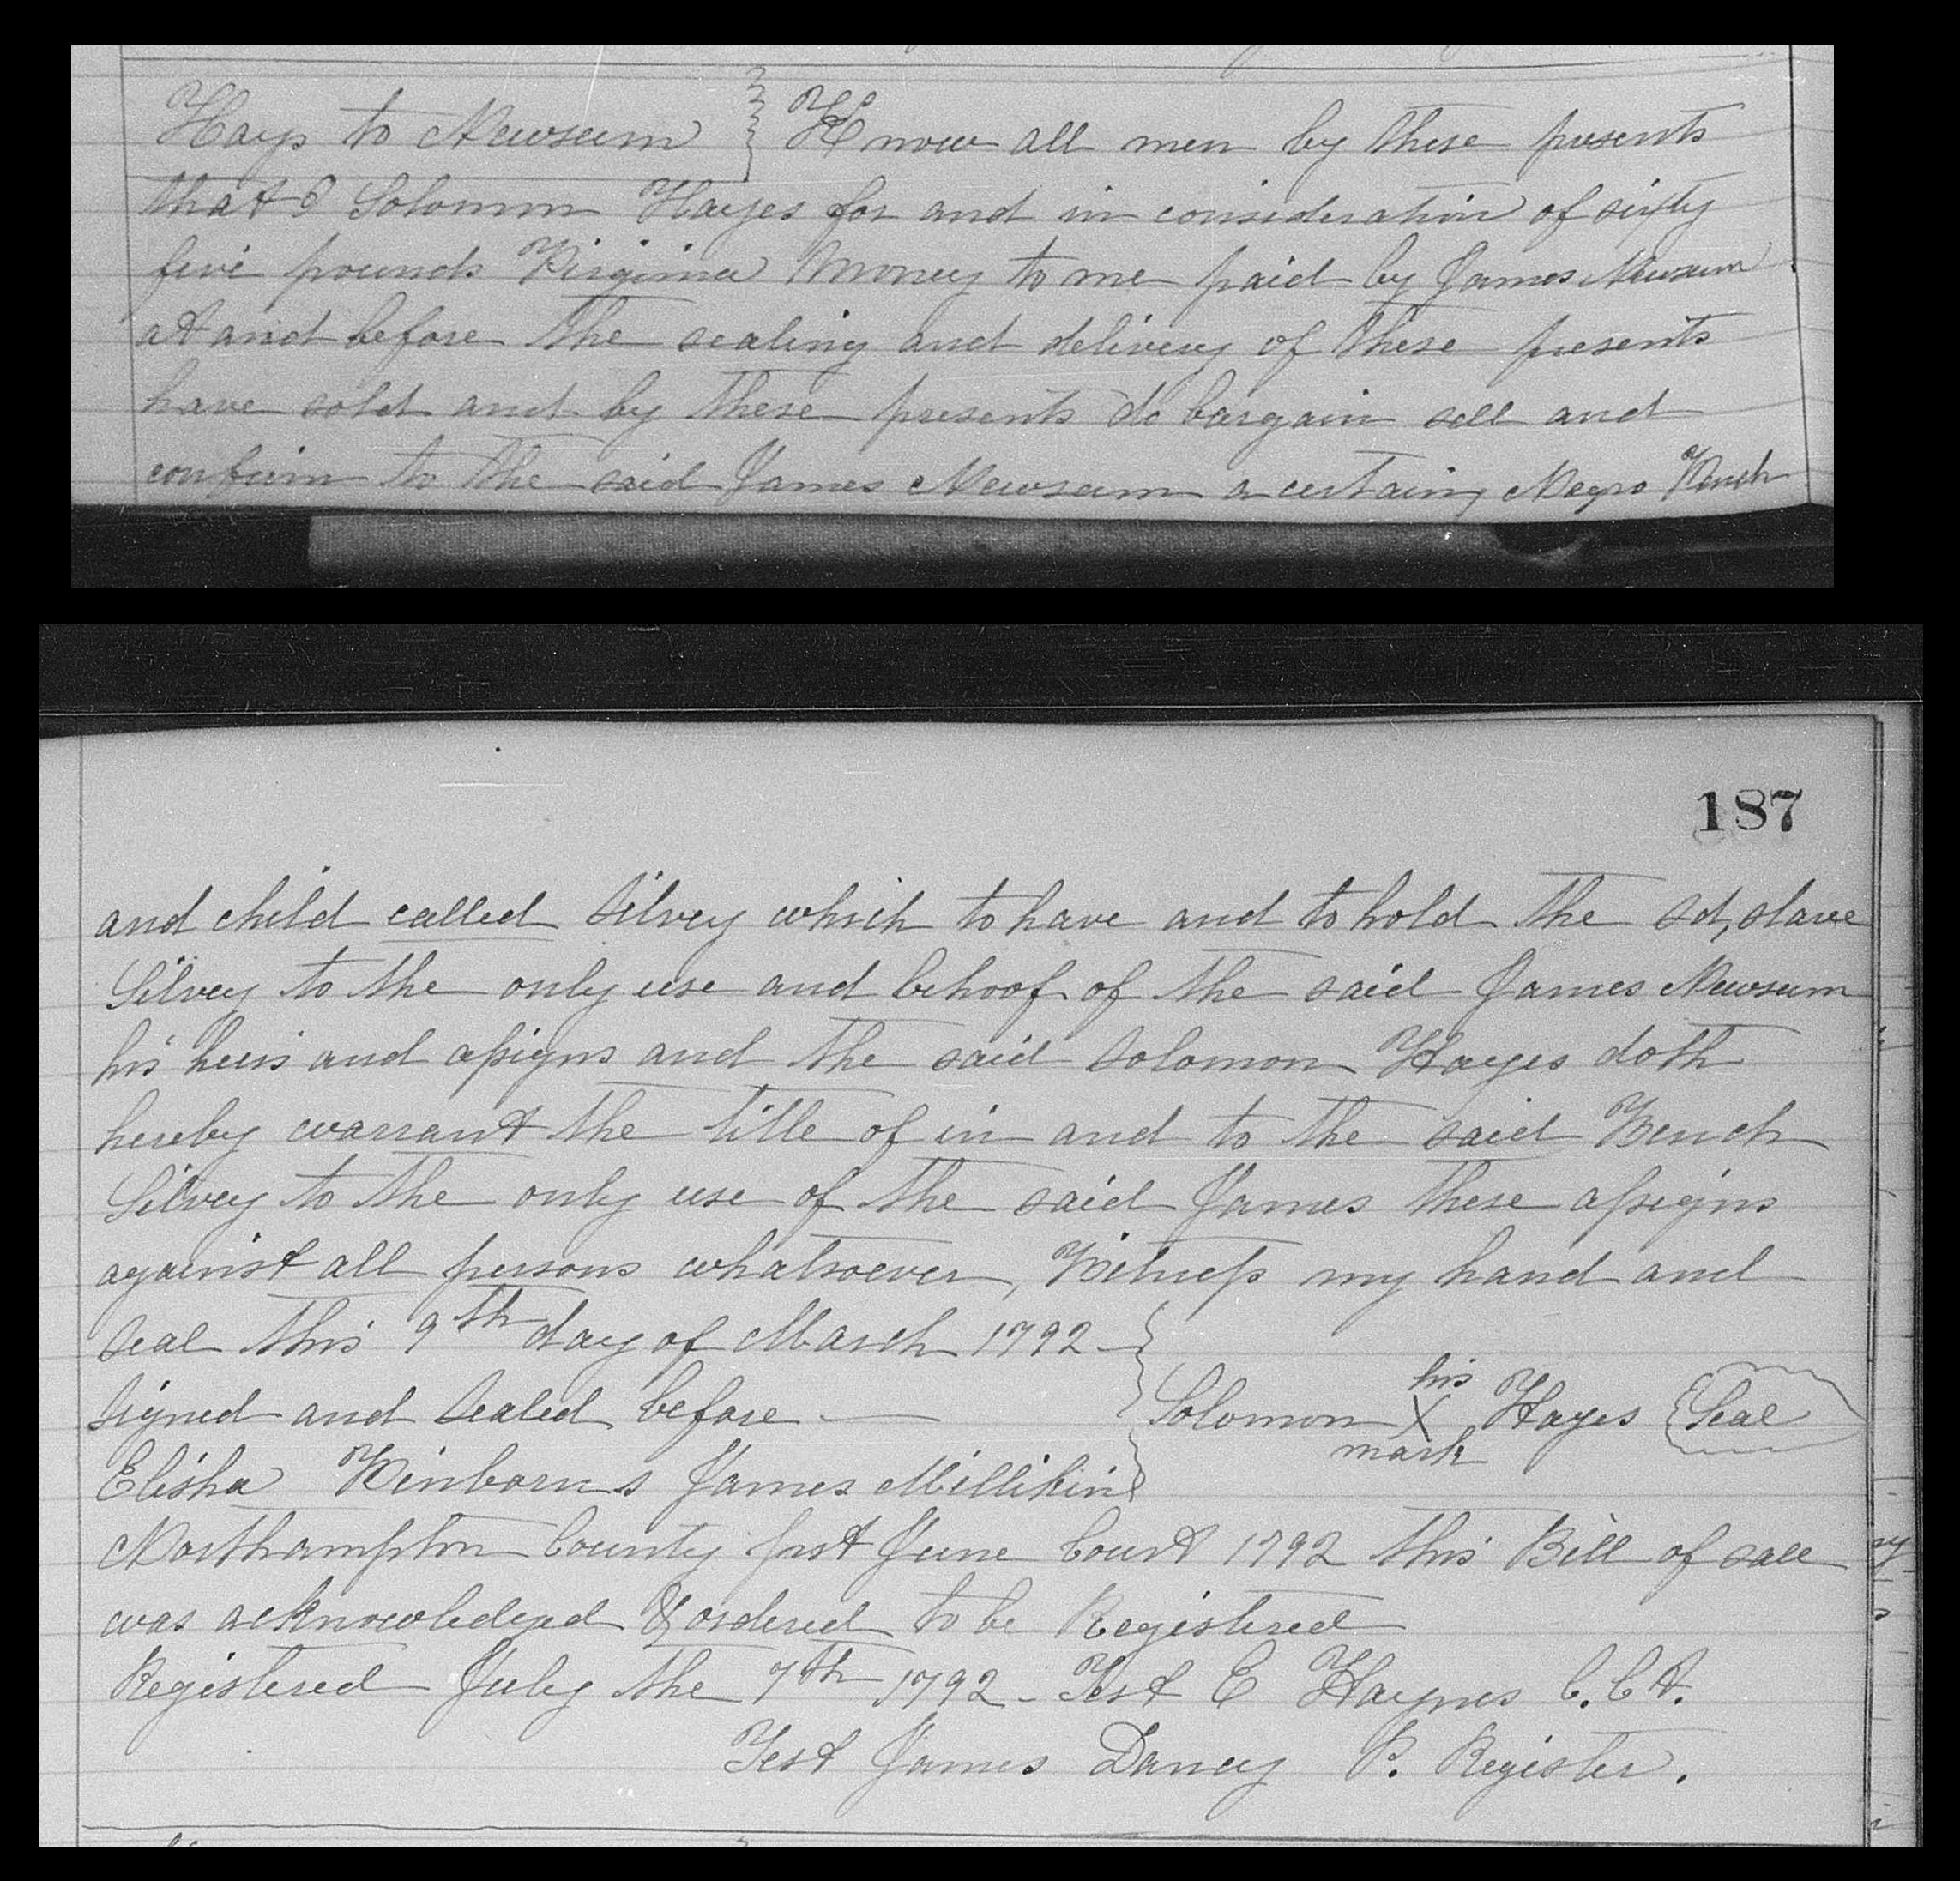 Hays to Newsum } Know all men by these presents
that I Solomon Hayes for and in consideration of sixty
five pounds Virginia Money to me paid by James Newsum
at and before the sealing and delivery of these presents
have sold and by these presents do bargain sell and
confirm to the said James Newsum a certain Negro Wench
187
and child called Silvey which to have and to hold the sd, slave
Silvey to the only use and behoof of the said James Newsum
his heirs and assigns and the said Solomon Hayes doth
hereby warrant the title of in and to the said Wench
Silvey to the only use of the said James these assigns
against all persons whatsoever, Witness my hand and
seal this 9th day of March 1792
Signed and Sealed before — Solomon his X mark Hayes Seal
Elisha Winborns James Millikin
Northampton County fst June Court 1792 this Bill of sale
was acknowledged & ordered to be Registered
Registered July the 7th 1792 - Test E Haynes C. Ct.
Test James Dancy P. Register.